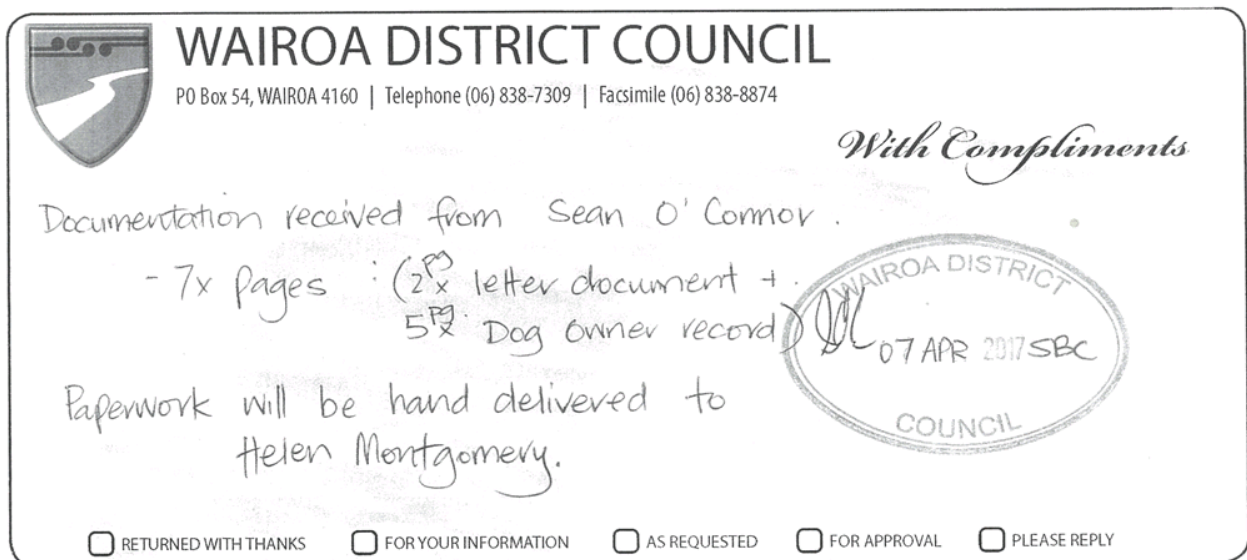 WAIROA DISTRICT COUNCIL
PO Box 54, WAIROA 4160 | Telephone (06) 838-7309 | Facsimile (06) 838-8874
With Compliments
Documentation received from Sean O'Connor.
- 7x pages : (2pg x letter document +
5pg x Dog owner record)
WAIROA DISTRICT
07 APR 2017 SBC
COUNCIL
Paperwork will be hand delivered to
Helen Montgomery.
RETURNED WITH THANKS FOR YOUR INFORMATION AS REQUESTED FOR APPROVAL PLEASE REPLY